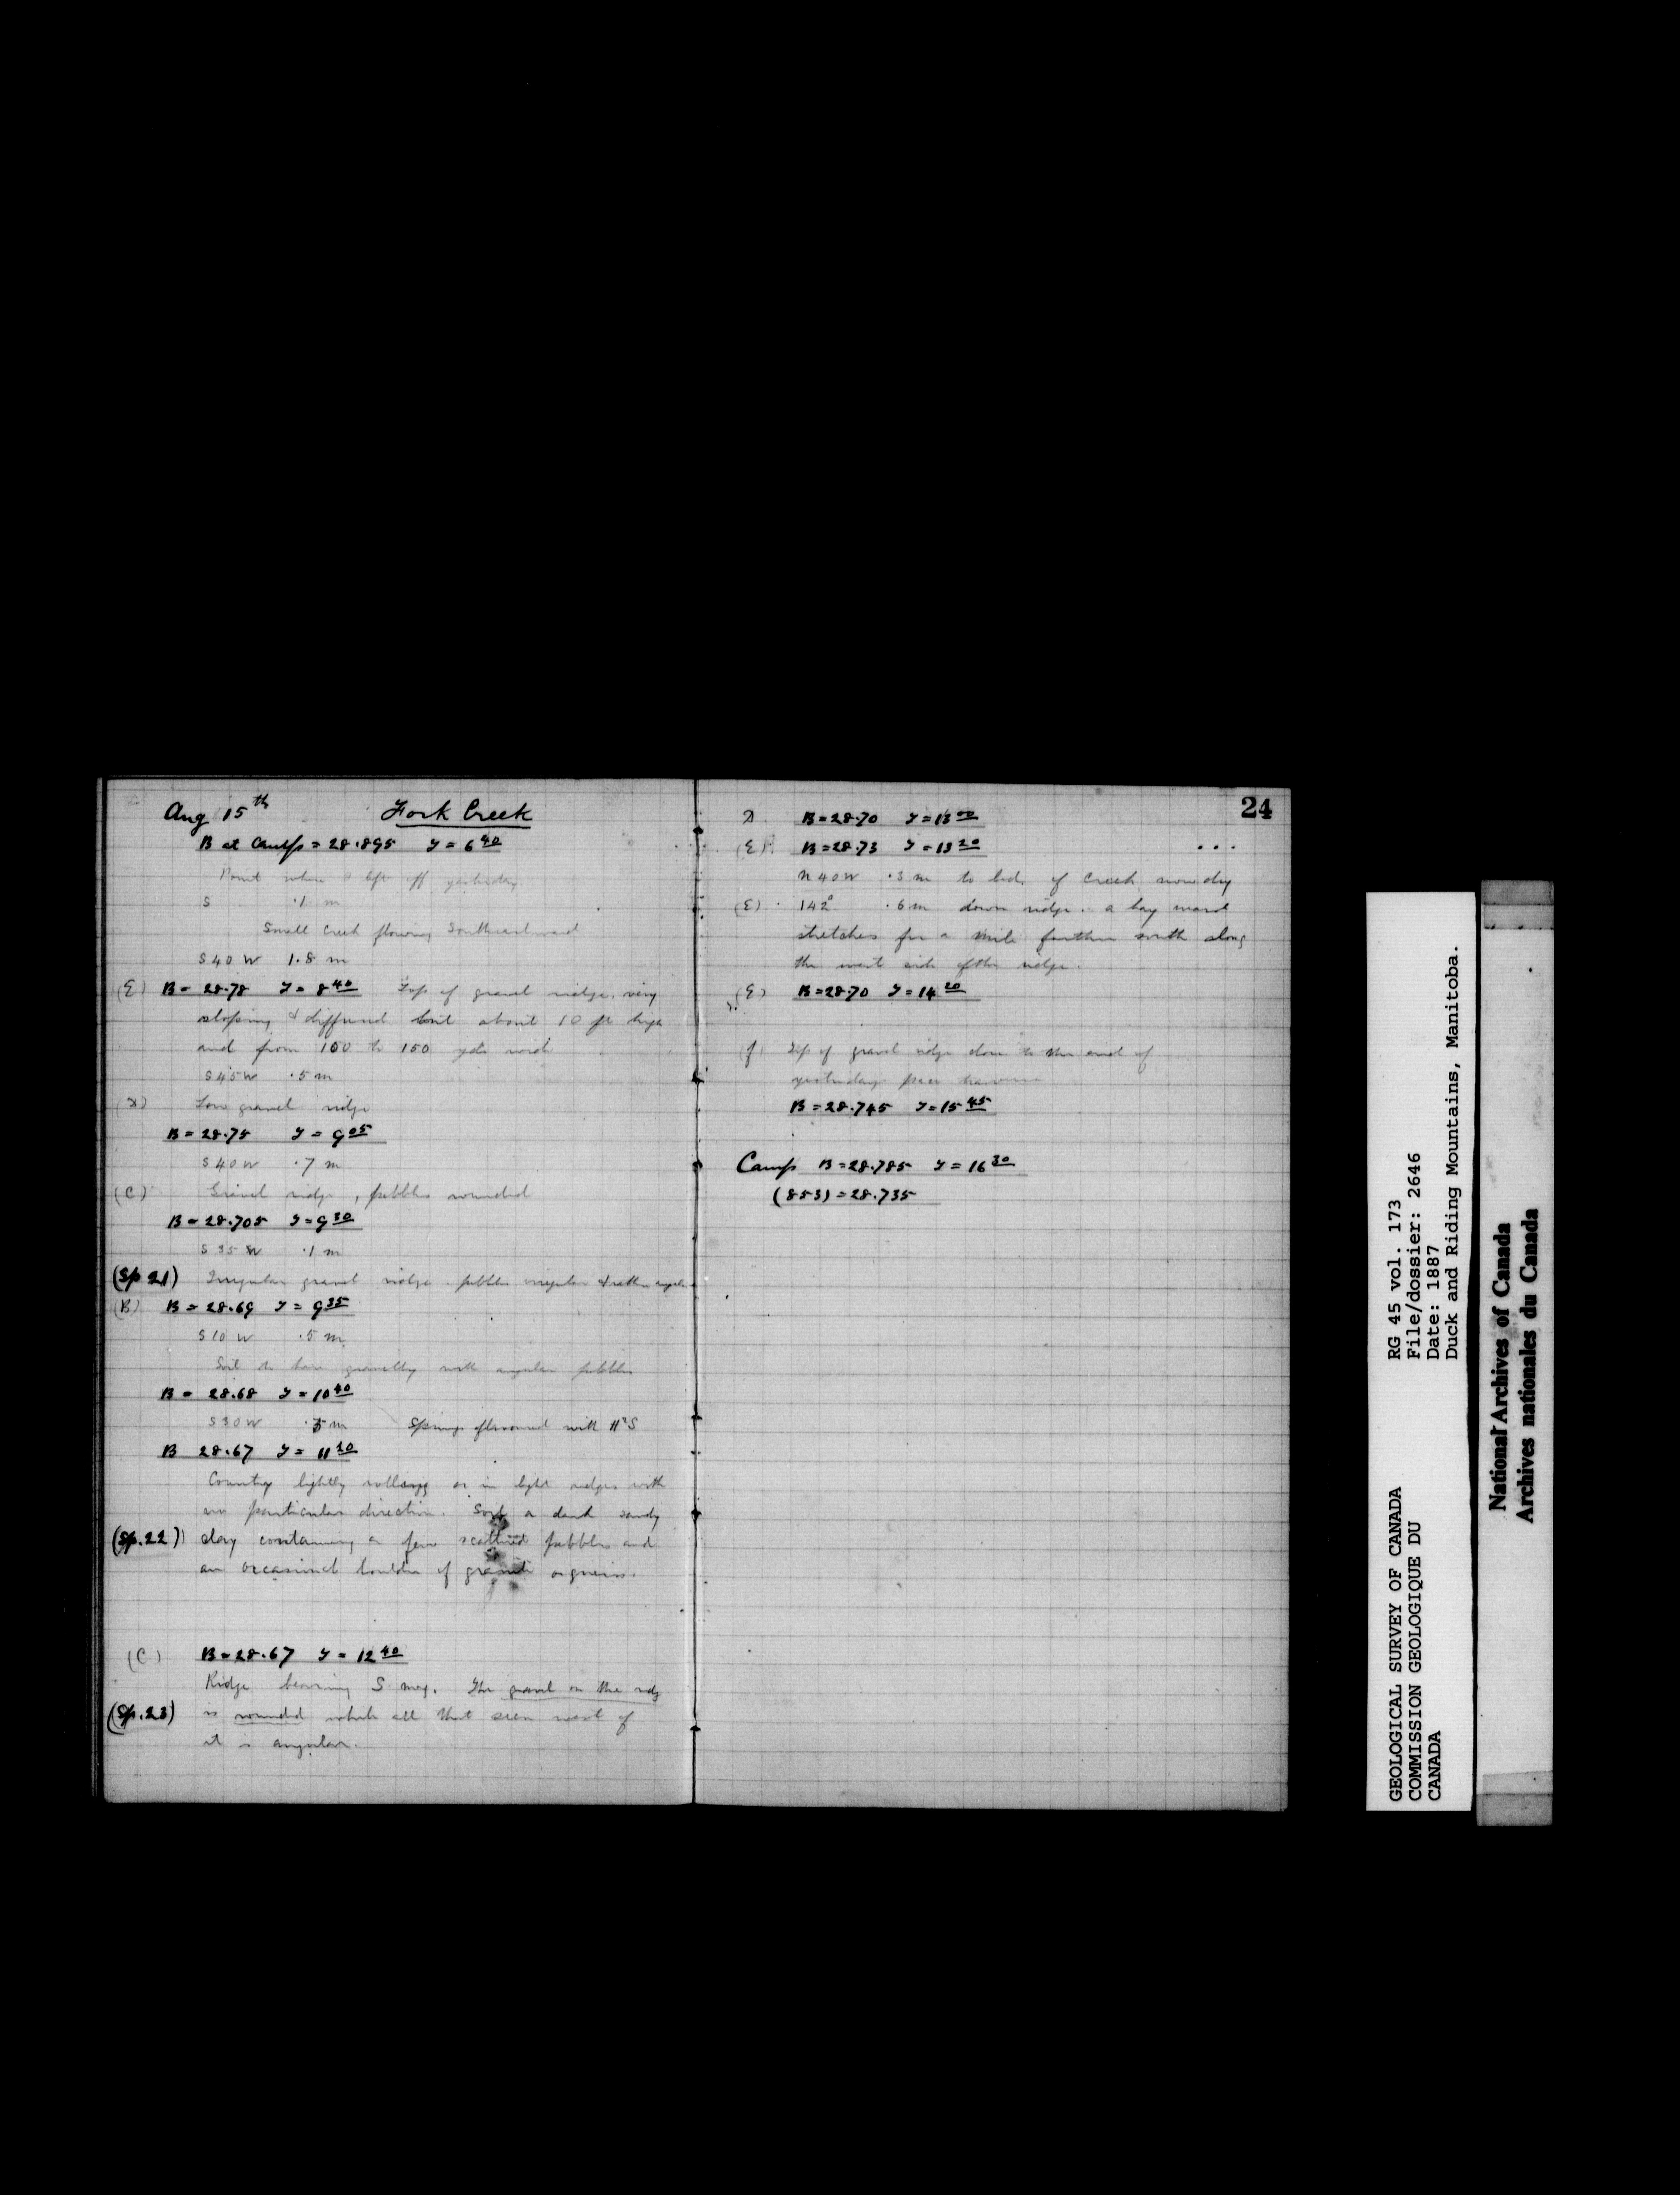 Aug 15th Fork Creek
B at Camp = 28.895 T = 6 40
Point where I left off yesterday
S .1 m
Small Creek flowing Southeastward
S 40 W 1.8 m
(E) B = 28.78 T = 8 40 Top of gravel ridge, very
sloping & diffused but about 10 ft high
and from 100 to 150 yds wide
S 45 W .5 m
(D) Low gravel ridge
B = 28.75 T = 9 05
S 40 W .7 m
(C) Gravel ridge, pebbles rounded
B = 28.705 T = 9 30
S 35 W .1 m
(Sp 21) Irregular gravel ridge. pebbles irregular & rather angular
(B) B = 28.69 T = 9 35
S 10 W .5 m
Soil to here gravelly with angular pebbles
B = 28.68 T = 10 40
S 30 W .5 m Springs flavoured with H2S
B 28.67 T = 11 20
Country lightly rolling or in light ridges with
no particular direction. Soil a dark sandy
(Sp. 22) clay containing a few scattered pebbles and
an occasional boulder of granite or gneiss.
(C) B = 28.67 T = 12 40
Ridge bearing S mag. The gravel on the ridge
(Sp. 23) is rounded while all that seen west of
it is angular.
24
D B = 28.70 T = 13 00
(E) B = 28.73 T = 13 20
N 40 W .3 m to bed of Creek now dry
(E) 142° .6 m down ridge. a hay marsh
stretches for a mile further south along
the west side of the ridge.
(E) B = 28.70 T = 14 20
(f) Top of gravel ridge close to the end of
yesterdays pace traverse
B = 28.745 T = 15 45
Camp B = 28.785 T = 16 30
(853) = 28.735
GEOLOGICAL SURVEY OF CANADA
COMMISSION GEOLOGIQUE DU
CANADA
RG 45 vol. 173
File/dossier: 2646
Date: 1887
Duck and Riding Mountains, Manitoba.
National Archives of Canada
Archives nationales du Canada